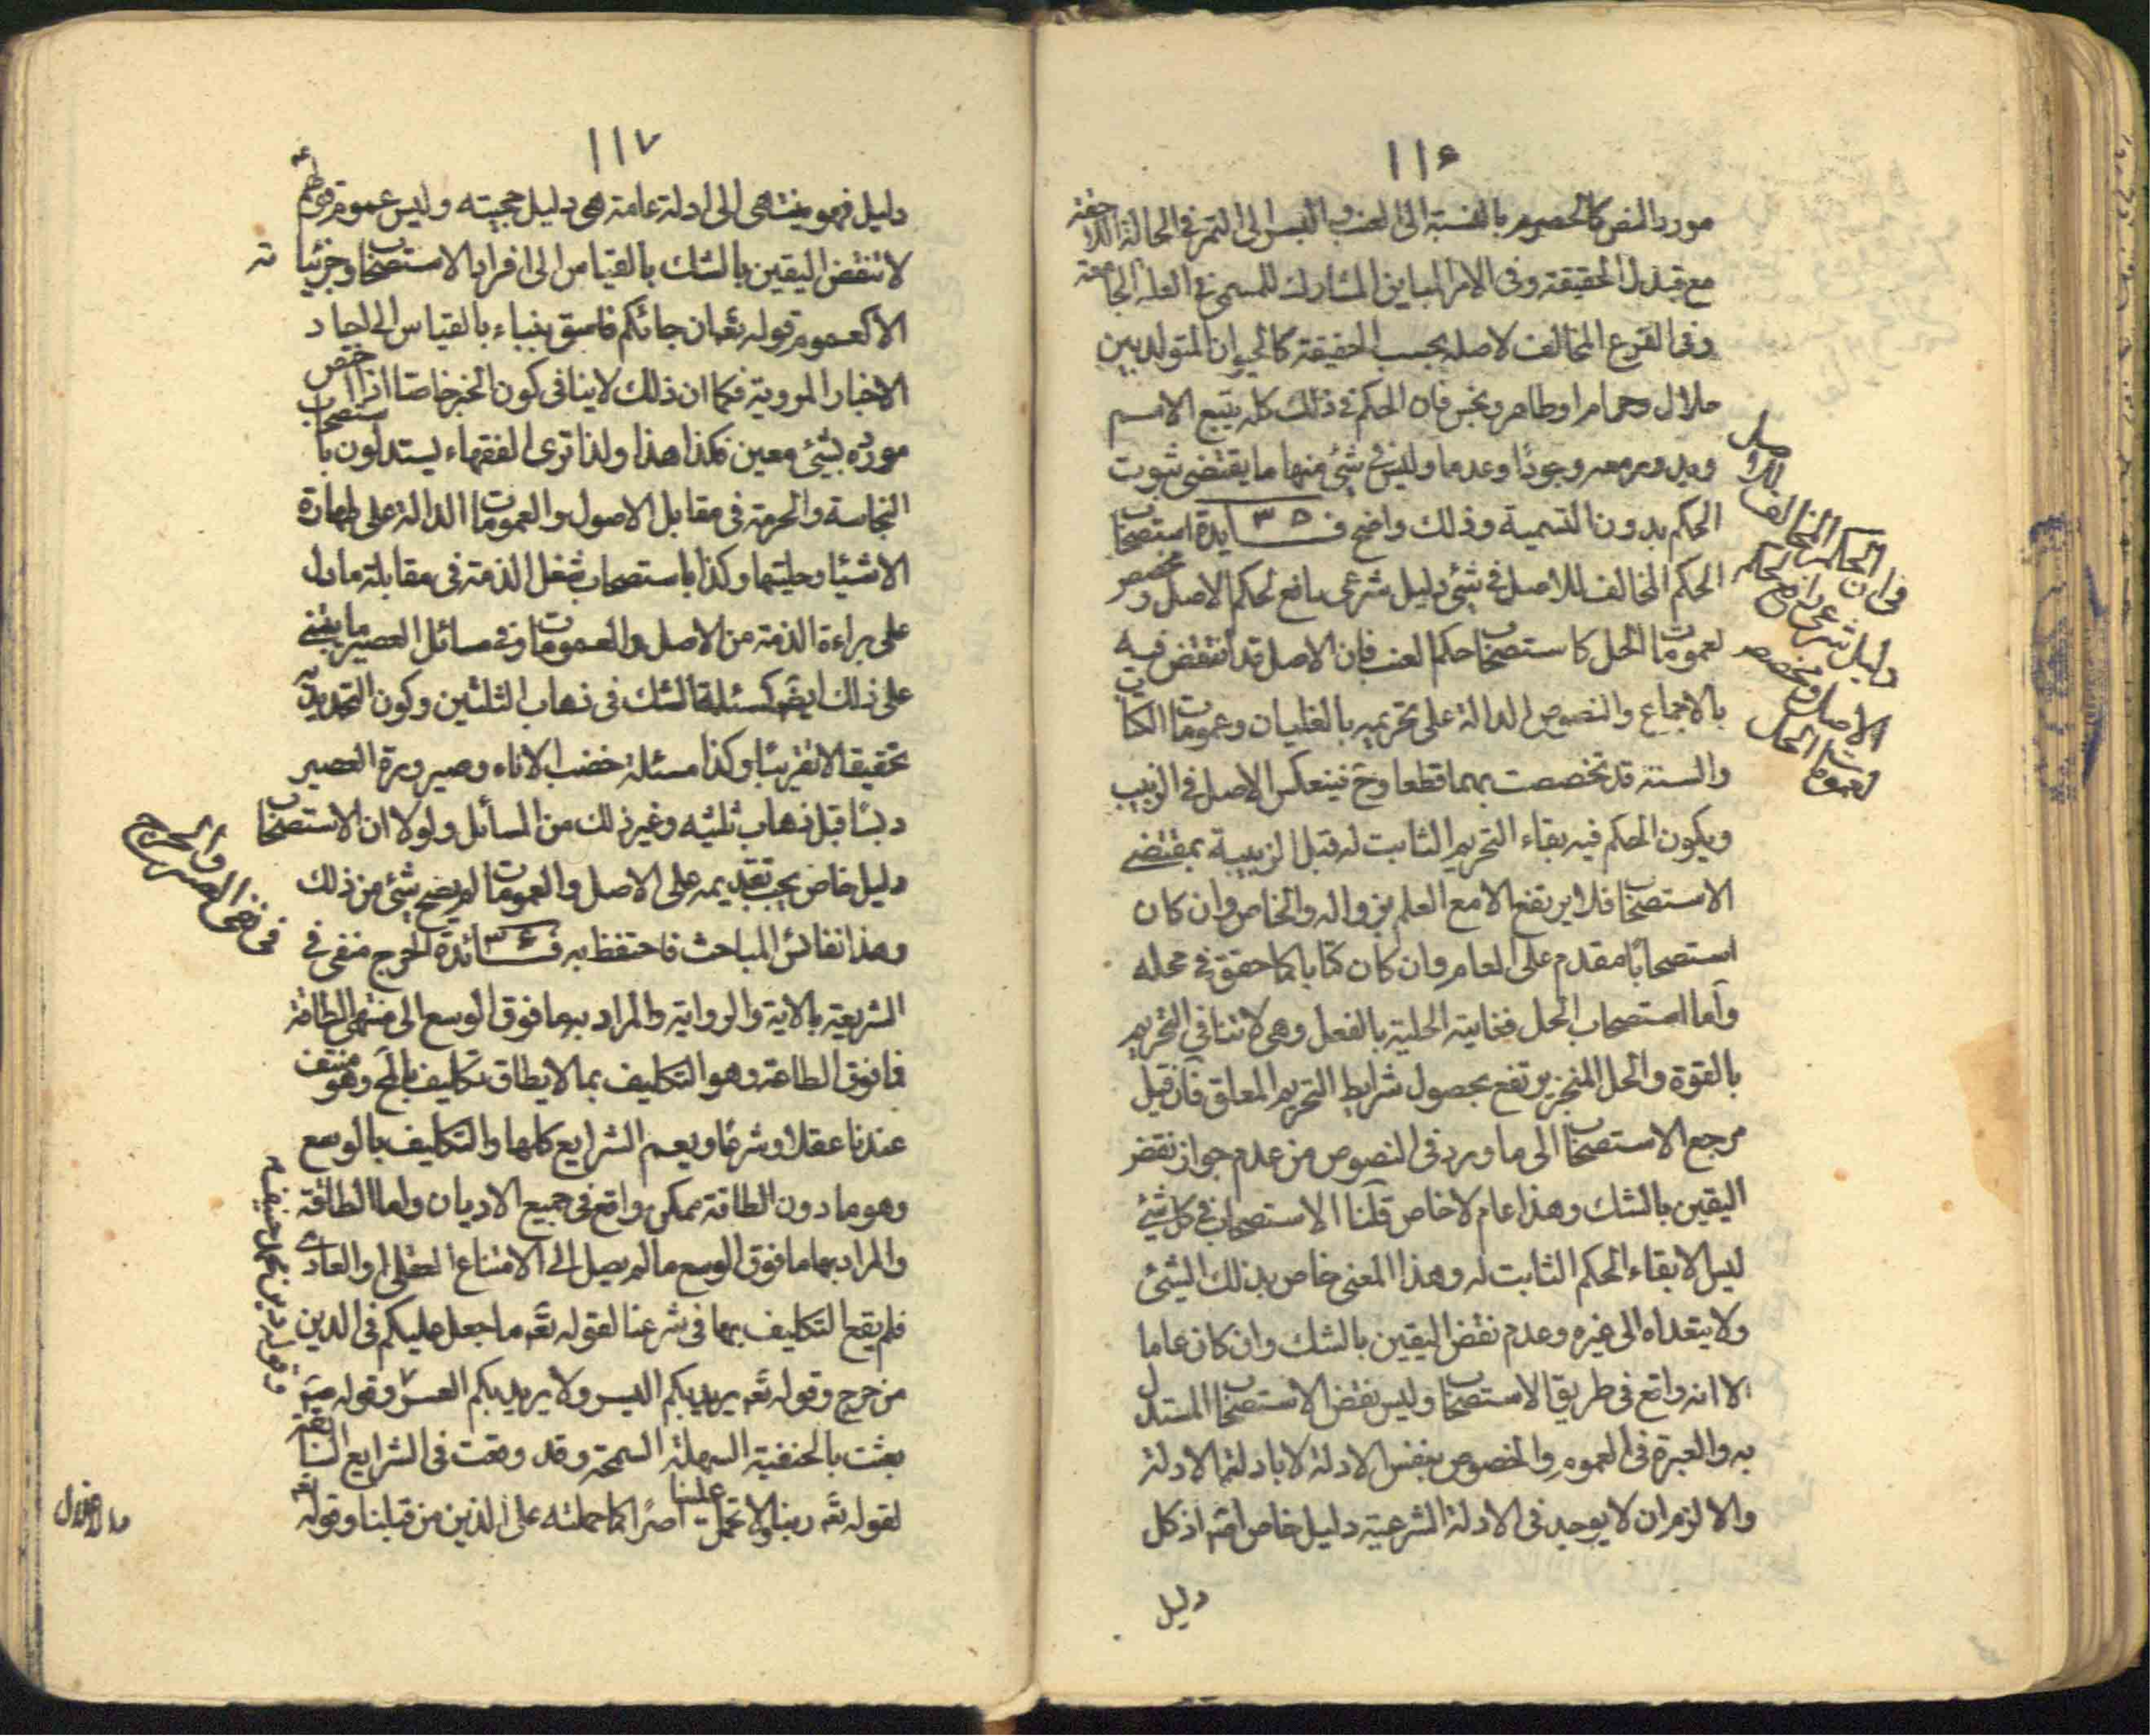 ١١٦
مورد النص كالحصرم بالنسبة الى العنب والبسر الى التمر في الحالة اللاحقة
مع تبدل الحقيقة وفى الامر المباين المشارك للمسمى فى العلة الجامعة
وفى الفرع المخالف لاصله بحسب الحقيقة كالحيوان المتولد بين
حلال وحرام او طاهر ونجس فان الحكم فى ذلك كله يتبع الاسم
ويدوم معه وجودًا وعدما وليس فى شئ منها ما يقتضى ثبوت
الحكم بدون التسمية وذلك واضح فــايدة ٣٥ استصحاب
الحكم المخالف للاصل فى شئ دليل شرعى رافع لحكم الاصل ومخصص
لعمومات الحل كاستصحاب حكم العنب فان الاصل قد انتقض فيه
بالاجماع والنصوص الدالة على تحريمه بالغليان وعمومات الكتاب
والسنة قد تخصصت بهما قطعا وح فينعكس الاصل فى الزبيب
ويكون الحكم فيه بقاء التحريم الثابت له قبل الزبيبية بمقتضى
الاستصحاب فلا يرتفع الا مع العلم بزواله والخاص وان كان
استصحابًا مقدم على العام وان كان كتابا كما حقق فى محله
وأما استصحاب الحل فغايته الحلية بالفعل وهى لا تنافى التحريم
بالقوة والحل المنجز يرتفع بحصول شرايط التحريم المعلق فان قيل
مرجع الاستصحاب الى ما ورد فى النصوص من عدم جواز نقض
اليقين بالشك وهذا عام لا خاص قلنا الاستصحاب فى كل شئ
ليس الا بقاء الحكم الثابت له وهذا المعنى خاص بذلك الشئ
ولا يتعداه الى غيره وعدم نقض اليقين بالشك وان كان عاما
الا انه واقع فى طريق الاستصحاب وليس نفس الاستصحاب المستدل
به والعبرة فى العموم والخصوص بنفس الادلة لا بادلة الادلة
والا لزم ان لا يوجد فى الادلة الشرعية دليل خاص اصلا اذ كل
دليل
فى ان الحكم المخالف للاصل
دليل شرعى رافع لحكم
الاصل ومخصص
لعمومات الحل
١١٧
دليل فهو ينتهى الى ادلة عامة هى دليل حجيته وليس عموم قولهم ع
لا تنقض اليقين بالشك بالقياس الى افراد الاستصحاب وجزئياته
الا كعموم قوله تعم ان جائكم فاسق بنباء بالقياس الى احاد
الاخبار المروية فكما ان ذلك لا ينافى كون الخبر خاصا اذا اختص
مورده بشئ معين فكذا هذا ولذا ترى الفقهاء يستدلون باستصحاب
النجاسة والحرمة فى مقابل الاصول والعمومات الدالة على طهارة
الاشيا وحليتها وكذا باستصحاب شغل الذمة فى مقابلة ما دل
على براءة الذمة من الاصل والعمومات وفى مسائل العصير ما يبتنى
على ذلك ايضا كمسئلة الشك فى ذهاب الثلثين وكون التحديد به
تحقيقا لا تقريبًا وكذا مسئلة خضب الاناء وصيرورة العصير
دبسًا قبل ذهاب ثلثيه وغير ذلك من المسائل ولولا ان الاستصحاب
دليل خاص يجب تقديمه على الاصل والعمومات لم يصح شئ من ذلك
وهذا نفائس المباحث فاحتفظ به فــائدة ٣٦ الحرج منفى فى
الشريعة بالاية والرواية والمراد به ما فوق الوسع الى منتهى الطاقة
فما فوق الطاقة وهو التكليف بما لا يطاق تكليف بالمح وهو منتف
عندنا عقلا وشرعًا ويعم الشرايع كلها والتكليف بالوسع
وهو ما دون الطاقة ممكن واقع فى جميع الاديان واما الطاقة
والمراد بها ما فوق الوسع ما لم يصل الى الامتناع العقلى او العادى
فلم يقع التكليف بها فى شرعنا لقوله تعم ما جعل عليكم فى الدين
من حرج وقوله تعم يريد بكم اليسر ولا يريد بكم العسر وقوله ص
بعثت بالحنفية السهلة السمحة وقد وقعت فى الشرايع السابقة
لقوله تعم ربنا ولا تحمل علينا اصرًا كما حملته على الذين من قبلنا وقوله
فى نفى العسر والحرج